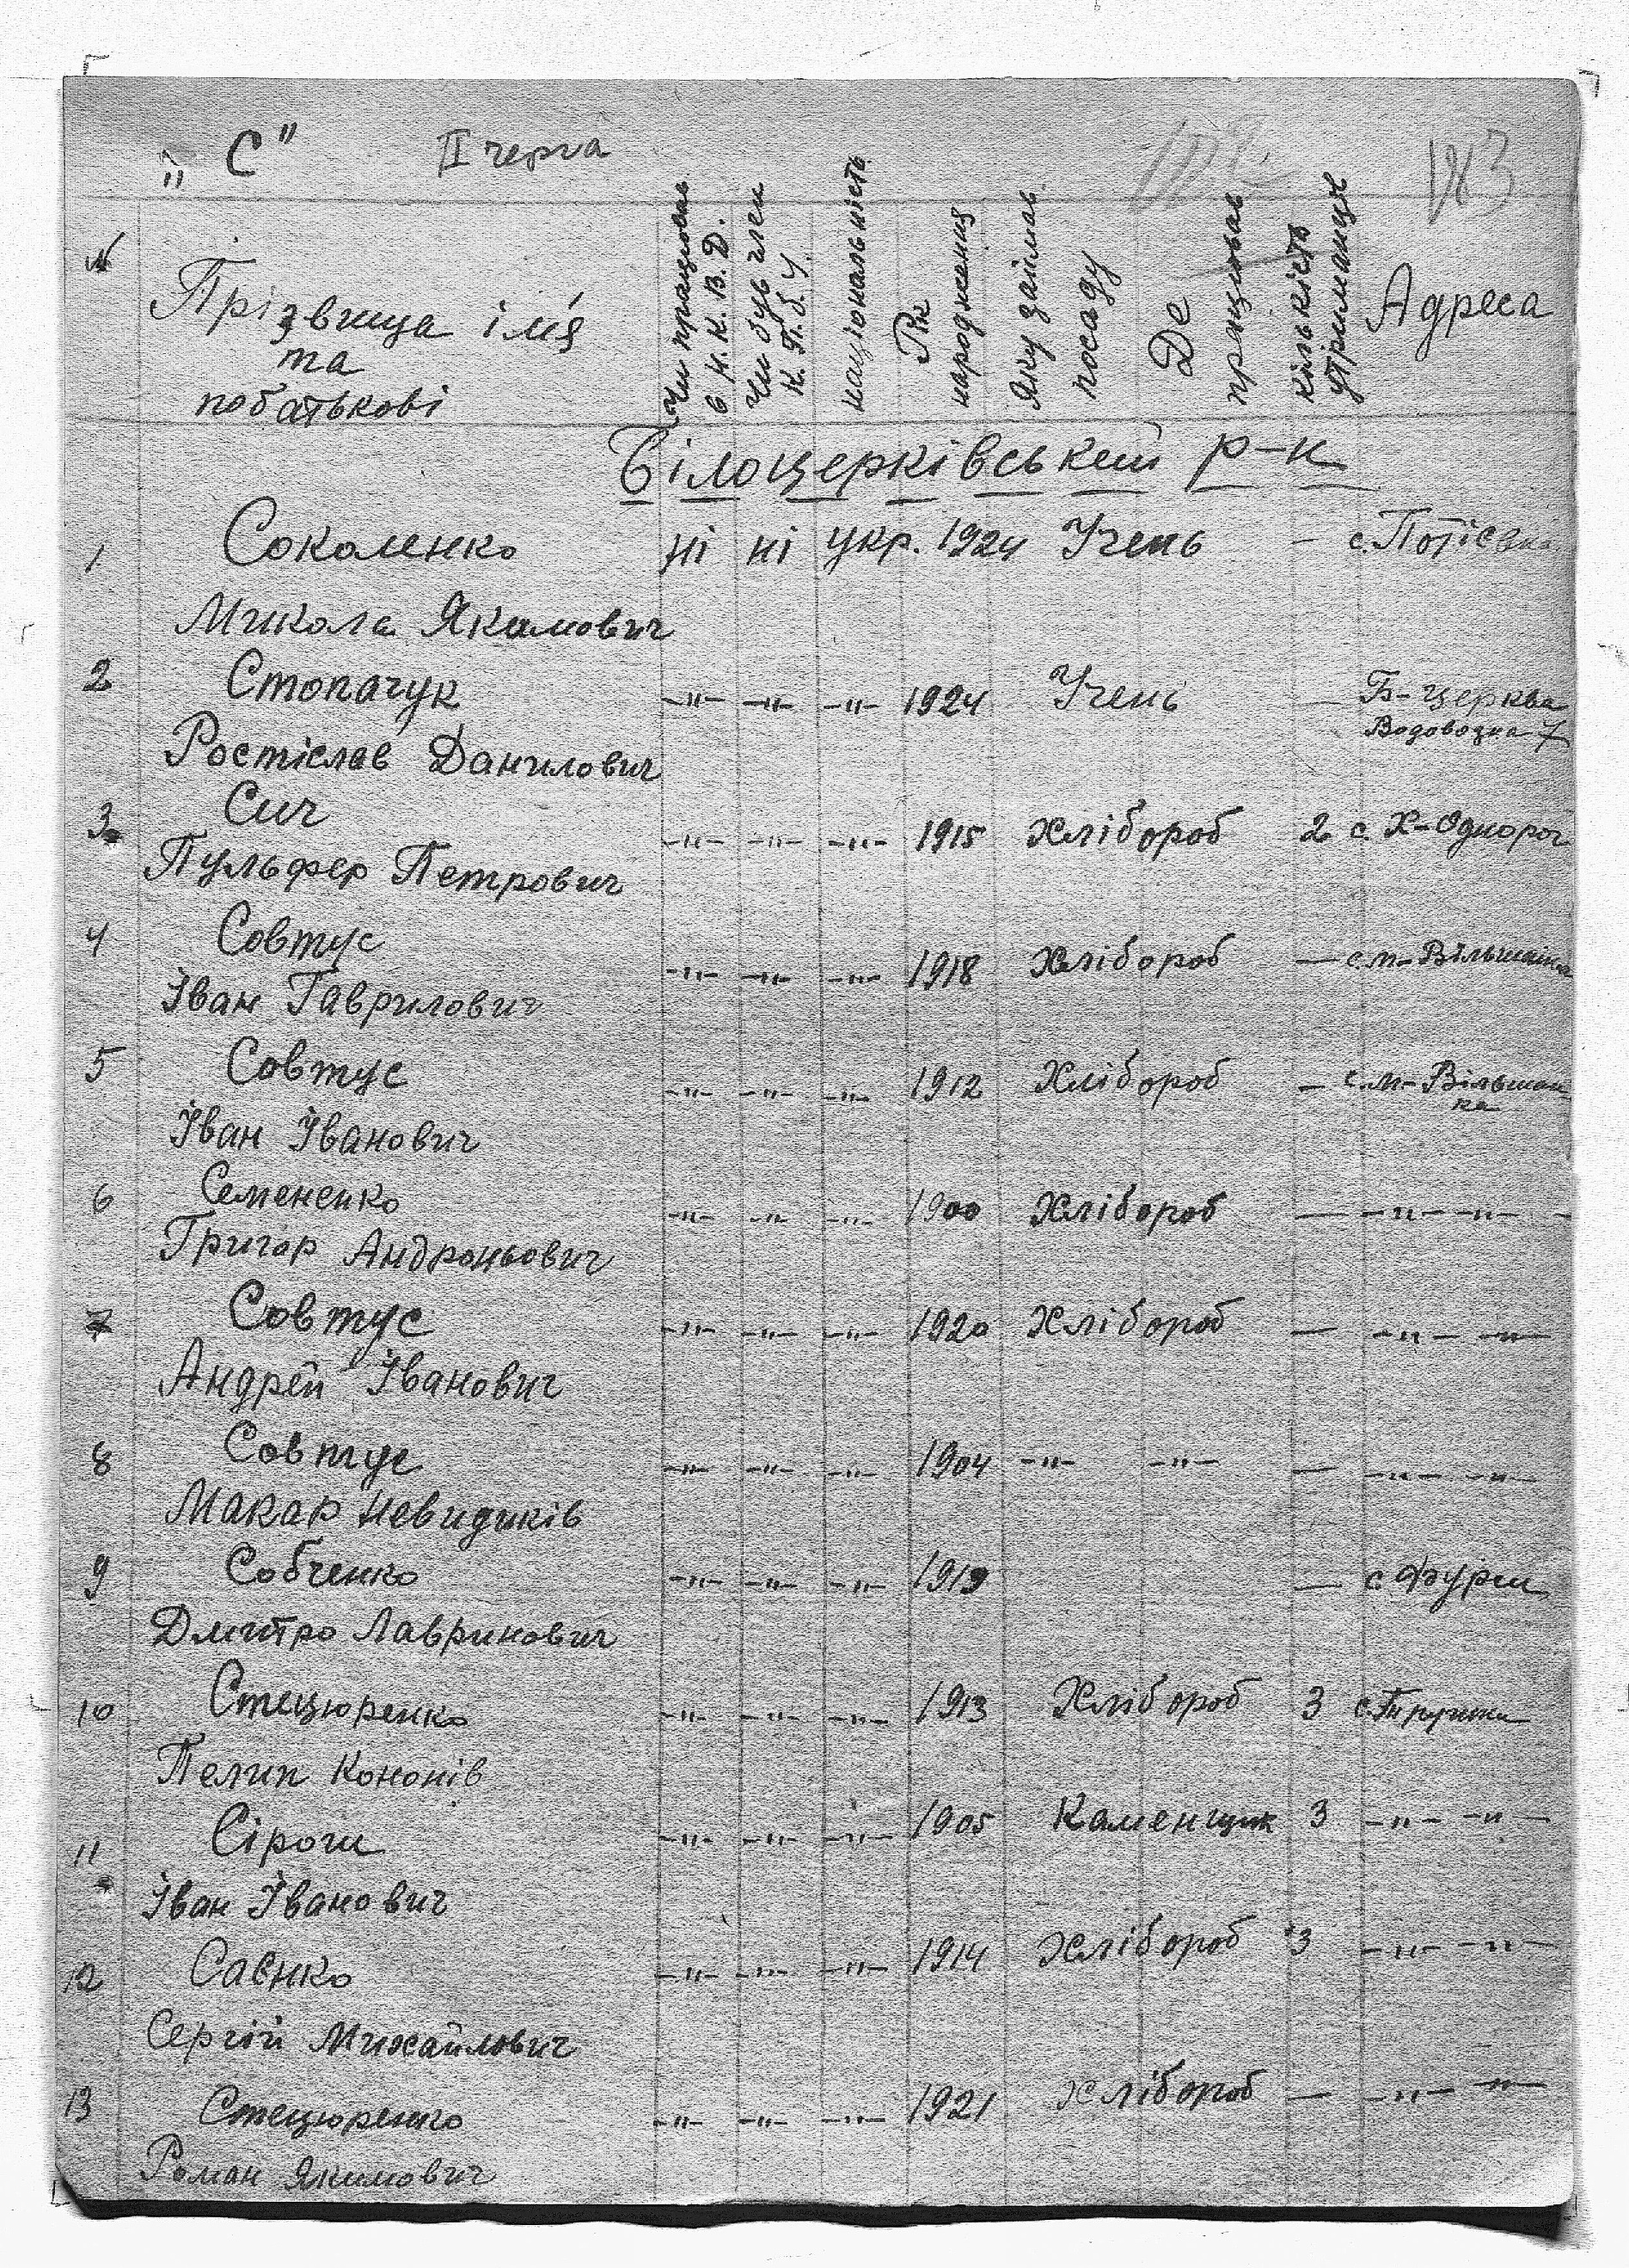 „С" II черга 183
№ Прізвища ім'я та побатькові Чи працював в Н.К.В.Д. Чи був член К.П.б.У. національність Рік народження Яку займав посаду Де працював кількість утриманців Адреса
Білоцерківський р-н
1 Соколенко ні ні укр. 1924 Учень — с. Потієвка
Микола Якимович
2 Стопачук —"— —"— —"— 1924 Учень — Б-церква
Водовозна 7
Ростіслав Данилович
3 Сич —"— —"— —"— 1915 Хлібороб 2 с. Х-Однорог
Пульфер Петрович
4 Совтус —"— —"— —"— 1918 Хлібороб — с. м-Вільшанка
Іван Гаврилович
5 Совтус —"— —"— —"— 1912 Хлібороб — с. м-Вільшан
ка
Іван Іванович
6 Семененко —"— —"— —"— 1900 Хлібороб — —"— —"—
Григор Андроньович
7 Совтус —"— —"— —"— 1920 Хлібороб — —"— —"—
Андрей Іванович
8 Совтус —"— —"— —"— 1904 —"— —"— — —"— —"—
Макар Невидиків
9 Собченко —"— —"— —"— 1919 — с
Дмитро Лавринович
10 Стецюренко —"— —"— —"— 1913 Хлібороб 3 с.
Пелип Кононів
11 Сірош —"— —"— —"— 1905 Каменщик 3 —"— —"—
Іван Іванович
12 Саєнко —"— —"— —"— 1914 Хлібороб 3 —"— —"—
Сергій Михайлович
13 Стецюренко —"— —"— —"— 1921 Хлібороб — —"— —"—
Роман Якимович